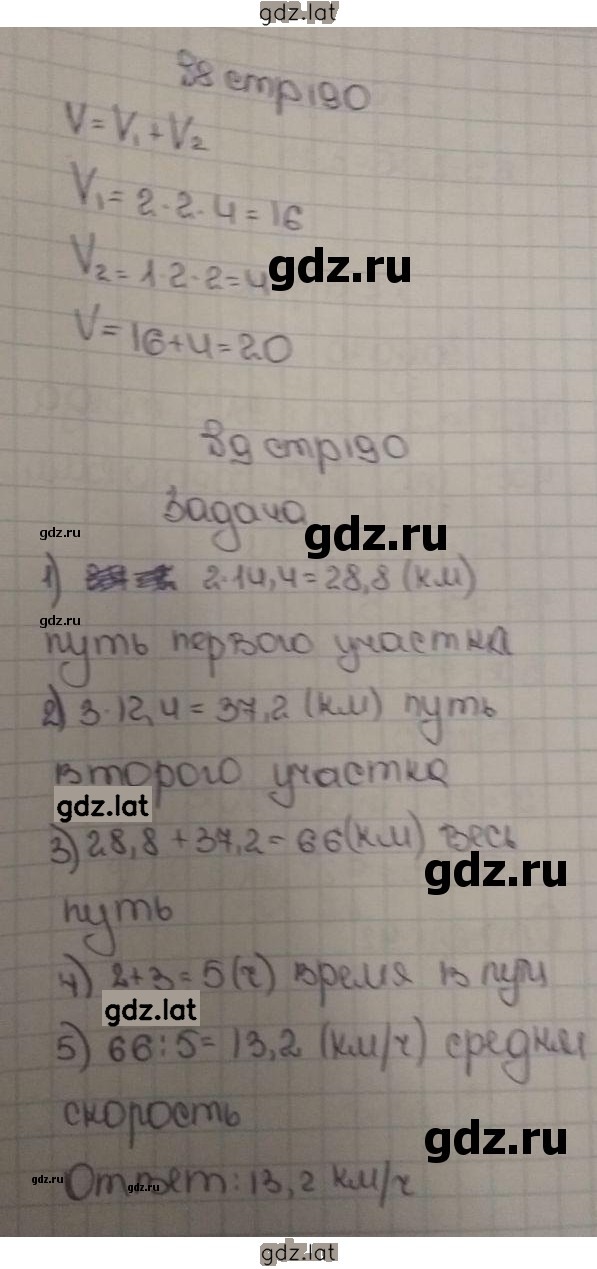 gdz.lat
38 стр190
V=V₁+V₂
V₁=2·2·4=16
V₂=1·2·2=4
gdz.ru
V=16+4=20
39 стр190
Задача
gdz.ru
gdz.ru
1) 2·14,4=28,8(км)
gdz.ru
путь первого участка
2) 3·12,4=37,2(км) путь
второго участка
gdz.lat
3) 28,8+37,2=66(км) весь
gdz.ru
путь
4) 2+3=5(ч) время в пути
gdz.lat
5) 66:5=13,2 (км/ч) средняя
скорость
gdz.ru
Ответ: 13,2 км/ч
gdz.ru
gdz.ru
gdz.lat